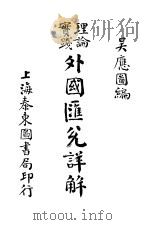 吳應圖編
理論
實踐
外國匯兌詳解
上海泰東圖書局印行
www.mtoou.info